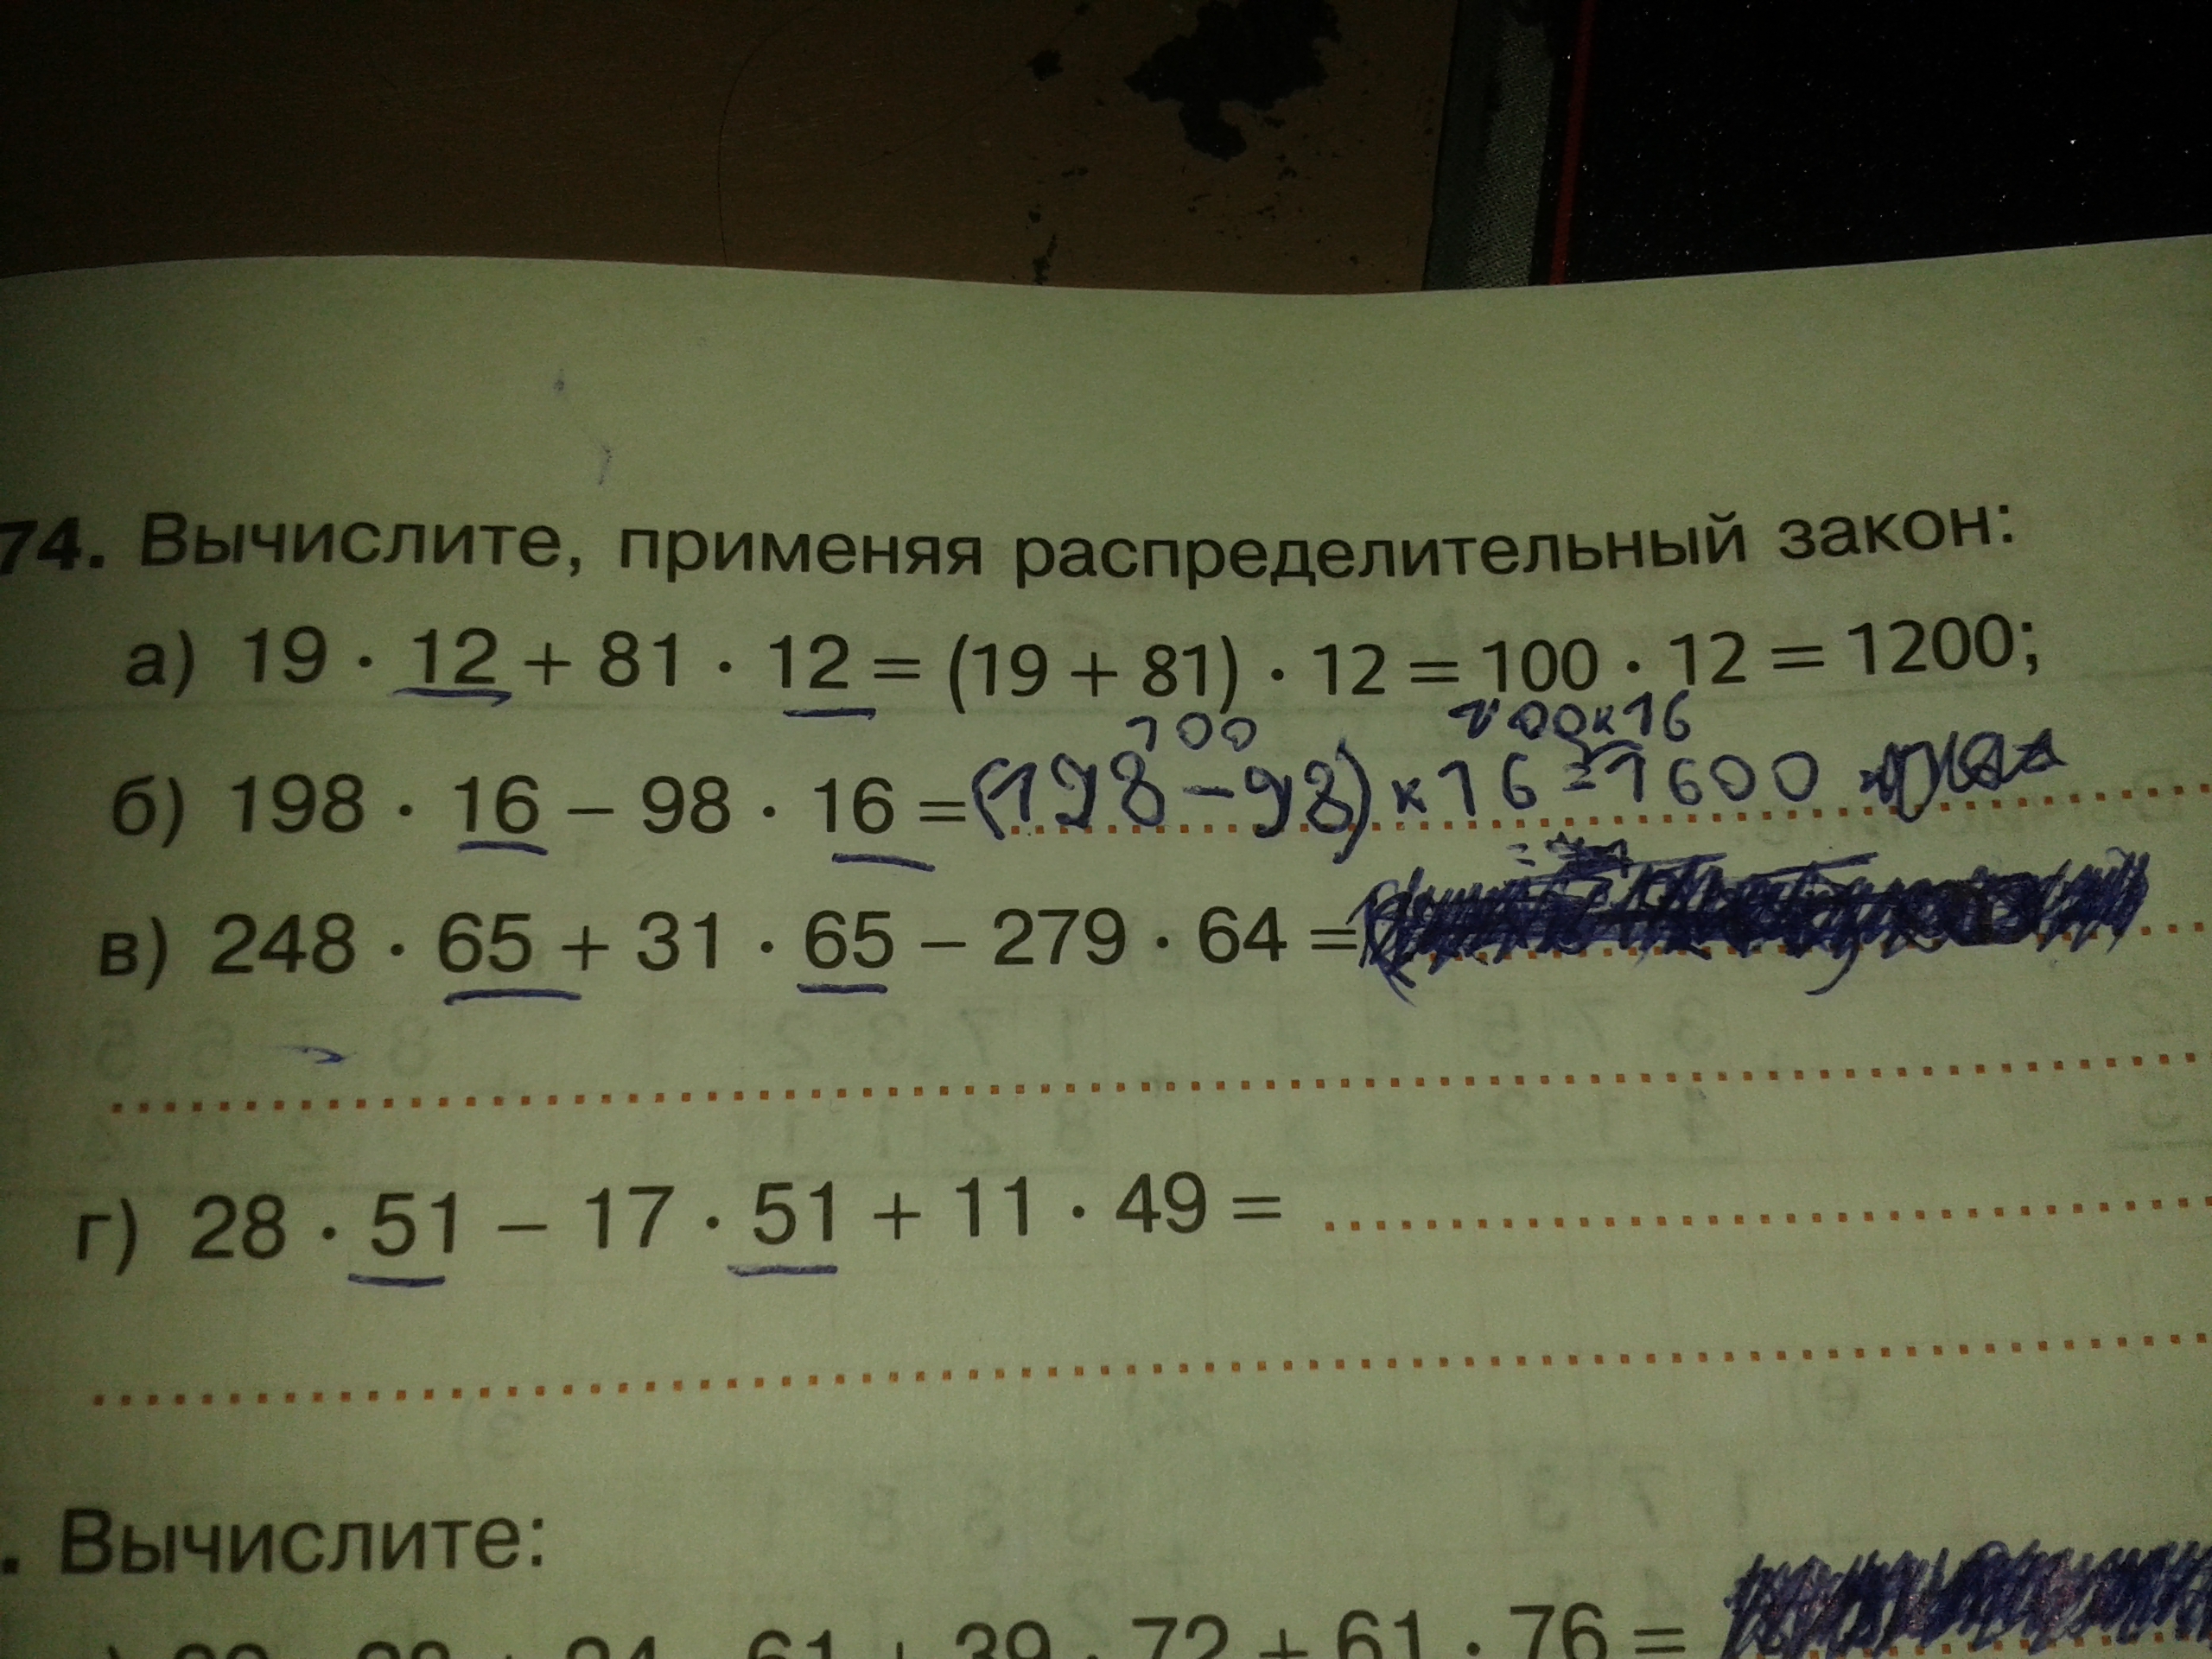 74. Вычислите, применяя распределительный закон:
а) 19 · 12 + 81 · 12 = (19 + 81) · 12 = 100 · 12 = 1200;
100
100×16
б) 198 · 16 – 98 · 16 = (198–98)×16=1600
в) 248 · 65 + 31 · 65 – 279 · 64 =
г) 28 · 51 – 17 · 51 + 11 · 49 =
. Вычислите:
61 + 39 · 72 + 61 · 76 =